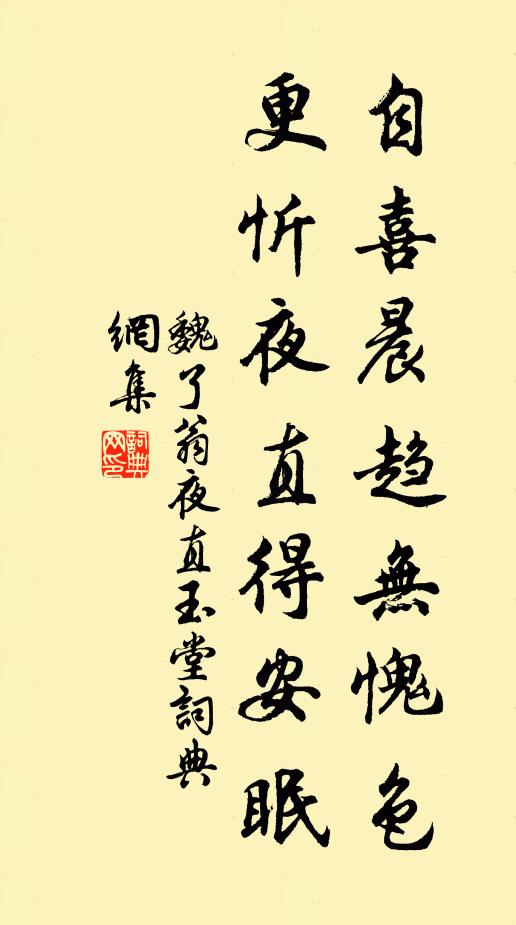 自喜晨趋無愧色
更忻夜直得安眠
魏了翁夜直玉堂詞典
網集
詞典
网印